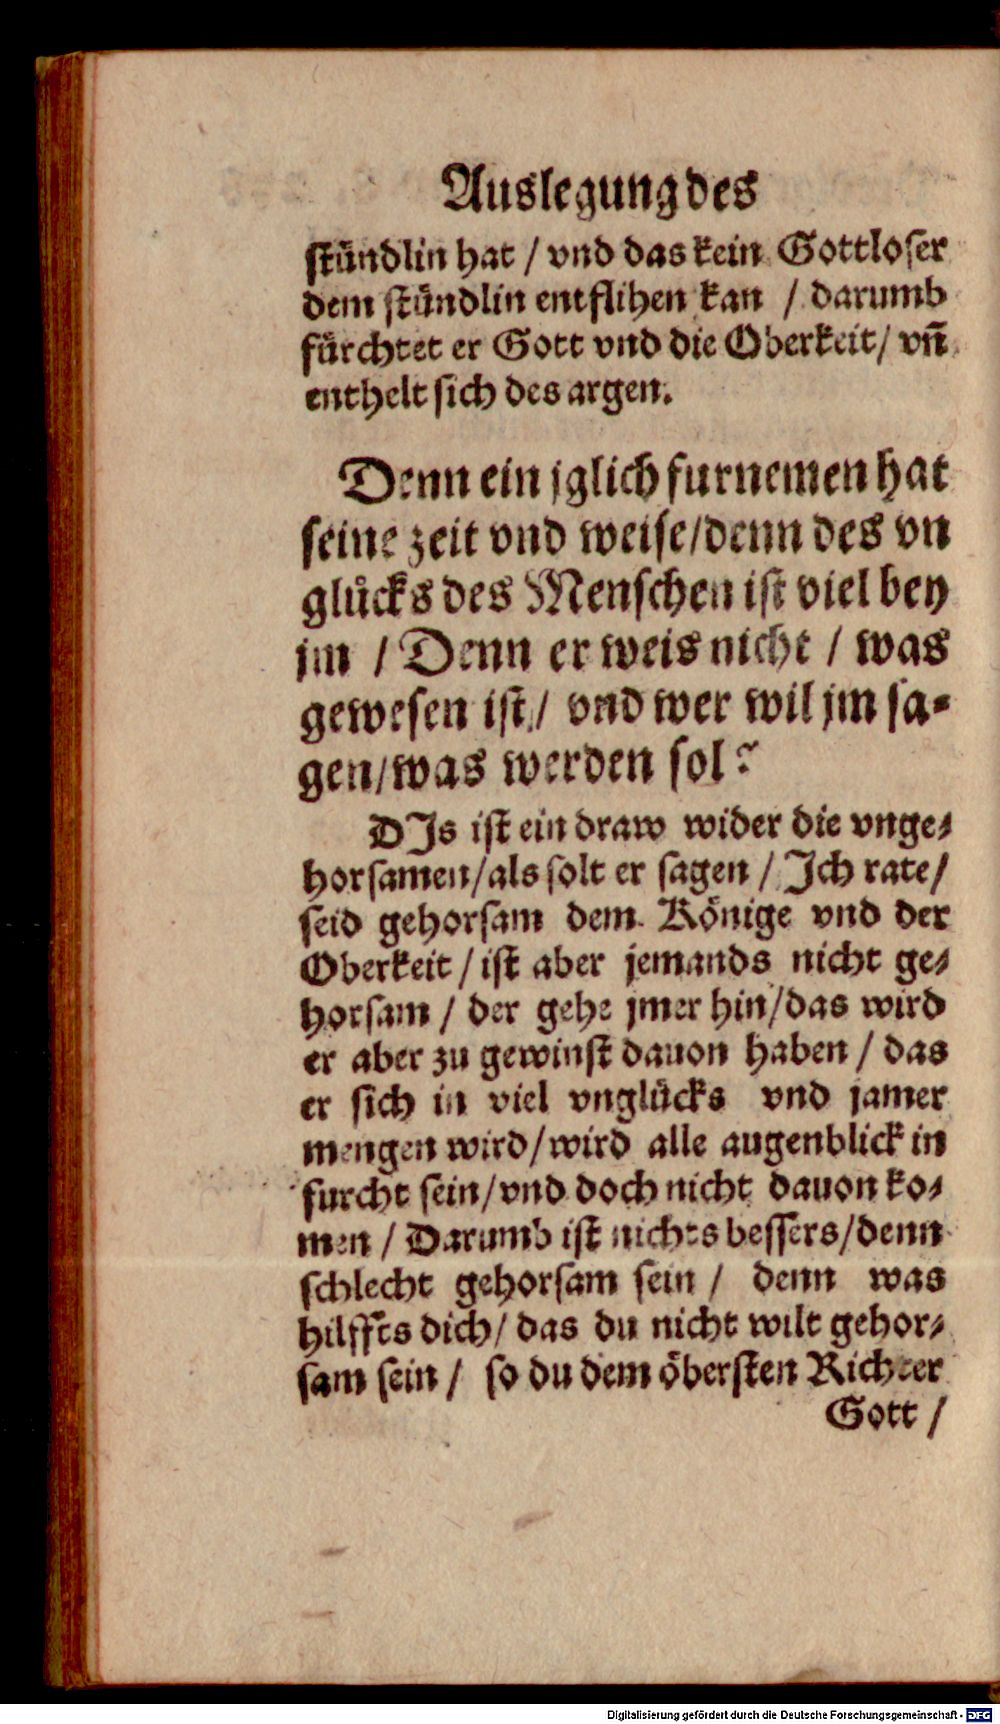 Auslegung des
stündlin hat / vnd das kein Gottloser
dem stündlin entflihen kan / darumb
fürchtet er Gott vnd die Oberkeit / vn̄
enthelt sich des argen.
Denn ein jglich furnemen hat
seine zeit vnd weise / denn des vn
glücks des Menschen ist viel bey
jm / Denn er weis nicht / was
gewesen ist / vnd wer wil jm sa-
gen / was werden sol?
DJs ist ein draw wider die vnge-
horsamen / als solt er sagen / Jch rate /
seid gehorsam dem Könige vnd der
Oberkeit / ist aber jemands nicht ge-
horsam / der gehe jmer hin / das wird
er aber zu gewinst dauon haben / das
er sich in viel vnglücks vnd jamer
mengen wird / wird alle augenblick in
furcht sein / vnd doch nicht dauon ko-
men / Darumb ist nichts bessers / denn
schlecht gehorsam sein / denn was
hilffts dich / das du nicht wilt gehor-
sam sein / so du dem öbersten Richter
Gott /
Digitalisierung gefördert durch die Deutsche Forschungsgemeinschaft - DFG